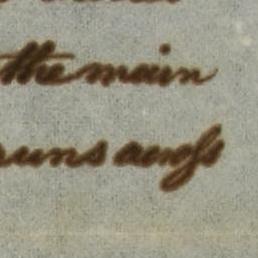 the main
runs across